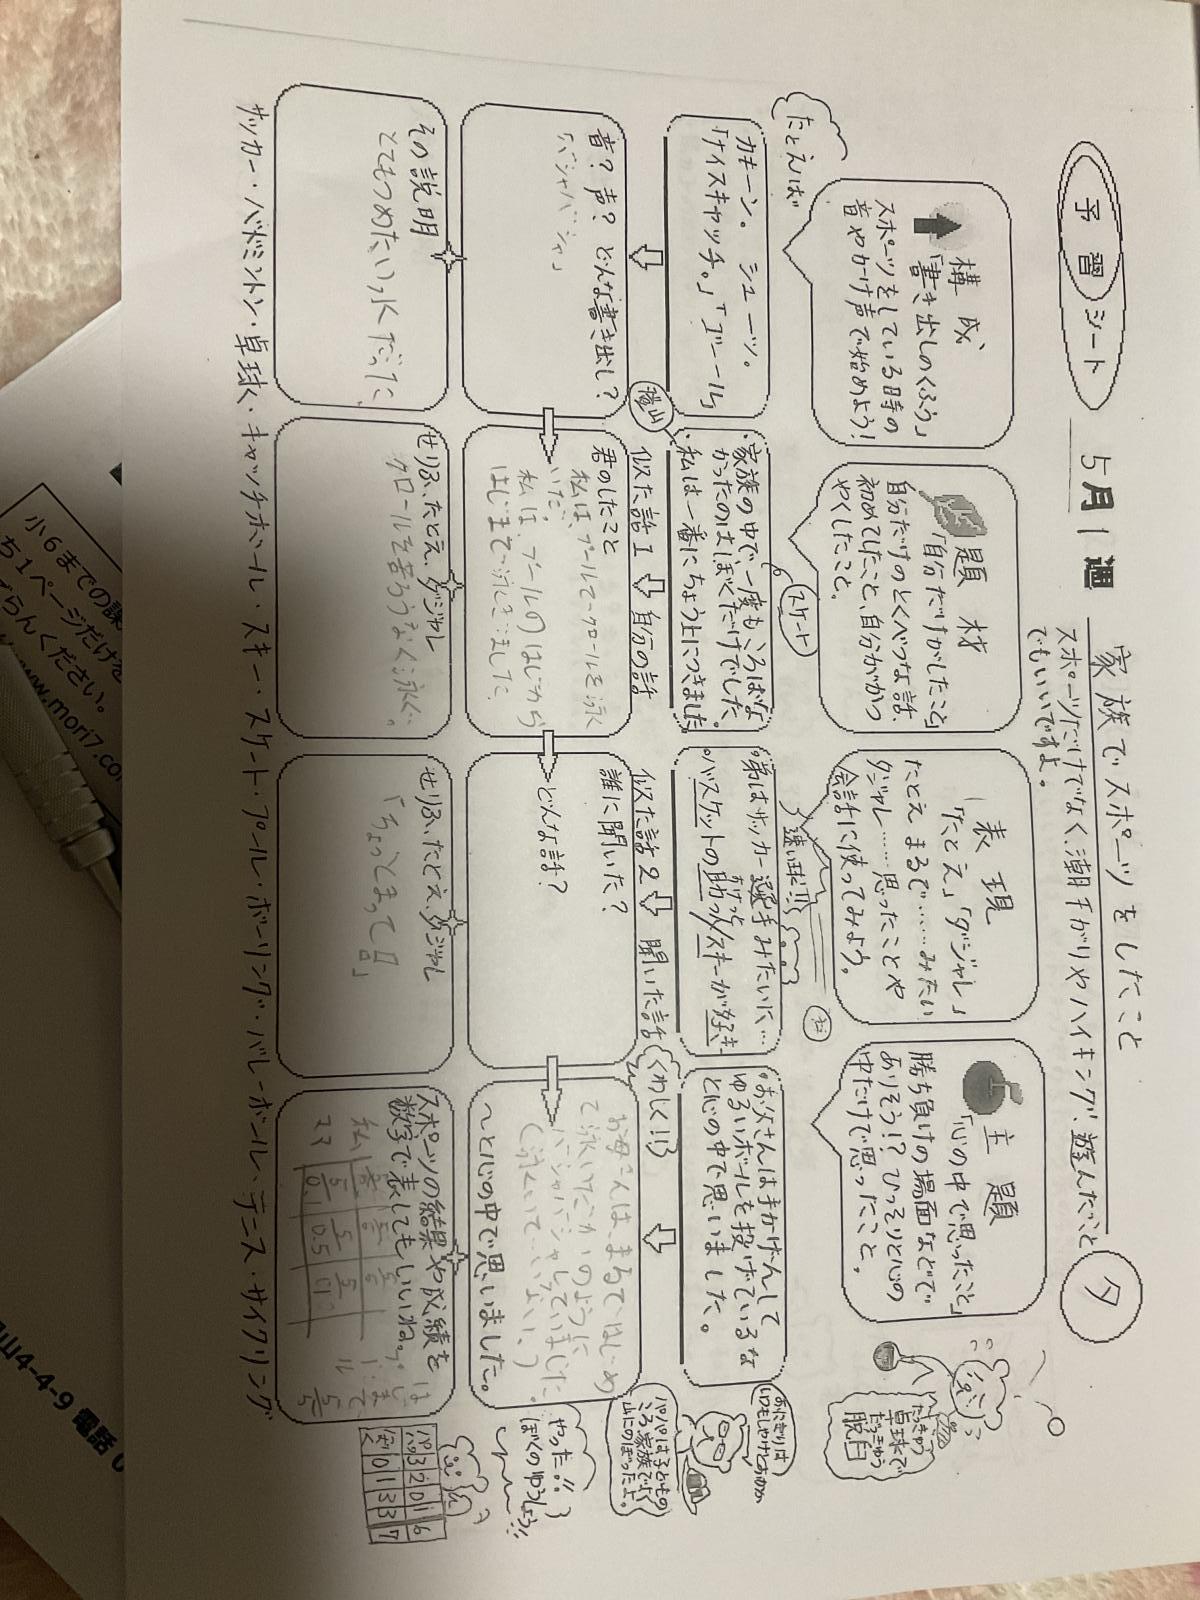 予習シート
5月1週
家族でスポーツをしたこと
スポーツだけでなく、潮干がりやハイキング、遊んだこと
でもいいですよ。
夕
構成
「書き出しのくふう」
スポーツをしている時の
音やかけ声で始めよう!
たとえば
カキーン。 シューッ。
「ナイスキャッチ。」「ゴール」
音?声?どんな書き出し?
「バシャバシャ」
その説明
とてもつめたい水だった
題材
「自分だけがしたこと」
自分だけのとくべつな話、
初めてしたこと、自分がかつ
やくしたこと。
スケート
・家族の中で一度もころばな
かったのはぼくだけでした。
登山
・私は一番にちょう上につきました。
似た話1 自分の話
君のしたこと
私は、プールでクロールを泳
いだ。
私は、プールのはじから
はじまで泳ぎきました。
せりふ、たとえ、ダジャレ
クロールを苦ろうなく泳ぐ。
表現
「たとえ」「ダジャレ」
たとえ まるで……みたい
ダジャレ……思ったことや
会話に使ってみよう。
速い球!!!
・弟はサッカー選手みたいに…
・バスケットの助っ人/スキーが好き
似た話2 聞いた話
誰に聞いた?
どんな話?
せりふ、たとえ、ダジャレ
「ちょっとまって
主題
「心の中で思ったこと」
勝ち負けの場面などで
ありそう!?ひっそりと心の
中だけで思ったこと。
・お父さんは手かげんして
ゆるいボールを投げているな
と心の中で思いました。
くわしく!!
お母さんは、まるではじめ
て泳いだかのように
バシャバシャしていました
〜と心の中で思いました。
スポーツの結果や成績を
数字で表してもいいね。
私
卓球で
だっきゅう
脱臼
おにぎりは
いつもしゃけとおかか
パパは子どもの
ころ家族でよく
山にのぼったよ。
やった!!
ぼくのゆうしょう!!
パパ 3 2 0 1 6
ぼく 0 1 3 3 7
サッカー・バドミントン・卓球・キャッチボール・スキー・スケート・プール・ボーリング・バレーボール・テニス・サイクリング
小6までの課
ち1ページだけを
ごらんください。
www.mori7.co
山4-4-9 電話 0